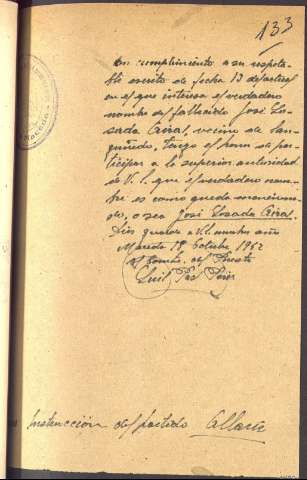 133
En cumplimiento a su respeta-
ble escrito de fecha 13 de actual
en el que interesa el verdadero
nombre del fallecido José Lo-
sada Giral, vecino de San-
guñedo, tengo el honor de par-
ticipar a la superior autoridad
de V. S. que el verdadero nom-
bre es como queda menciona-
do, o sea José Losada Giral.
Dios guarde a V.S. muchos años
Maceda 18 Octubre 1962
El Comte. del Puesto
Instrucción del partido Allariz